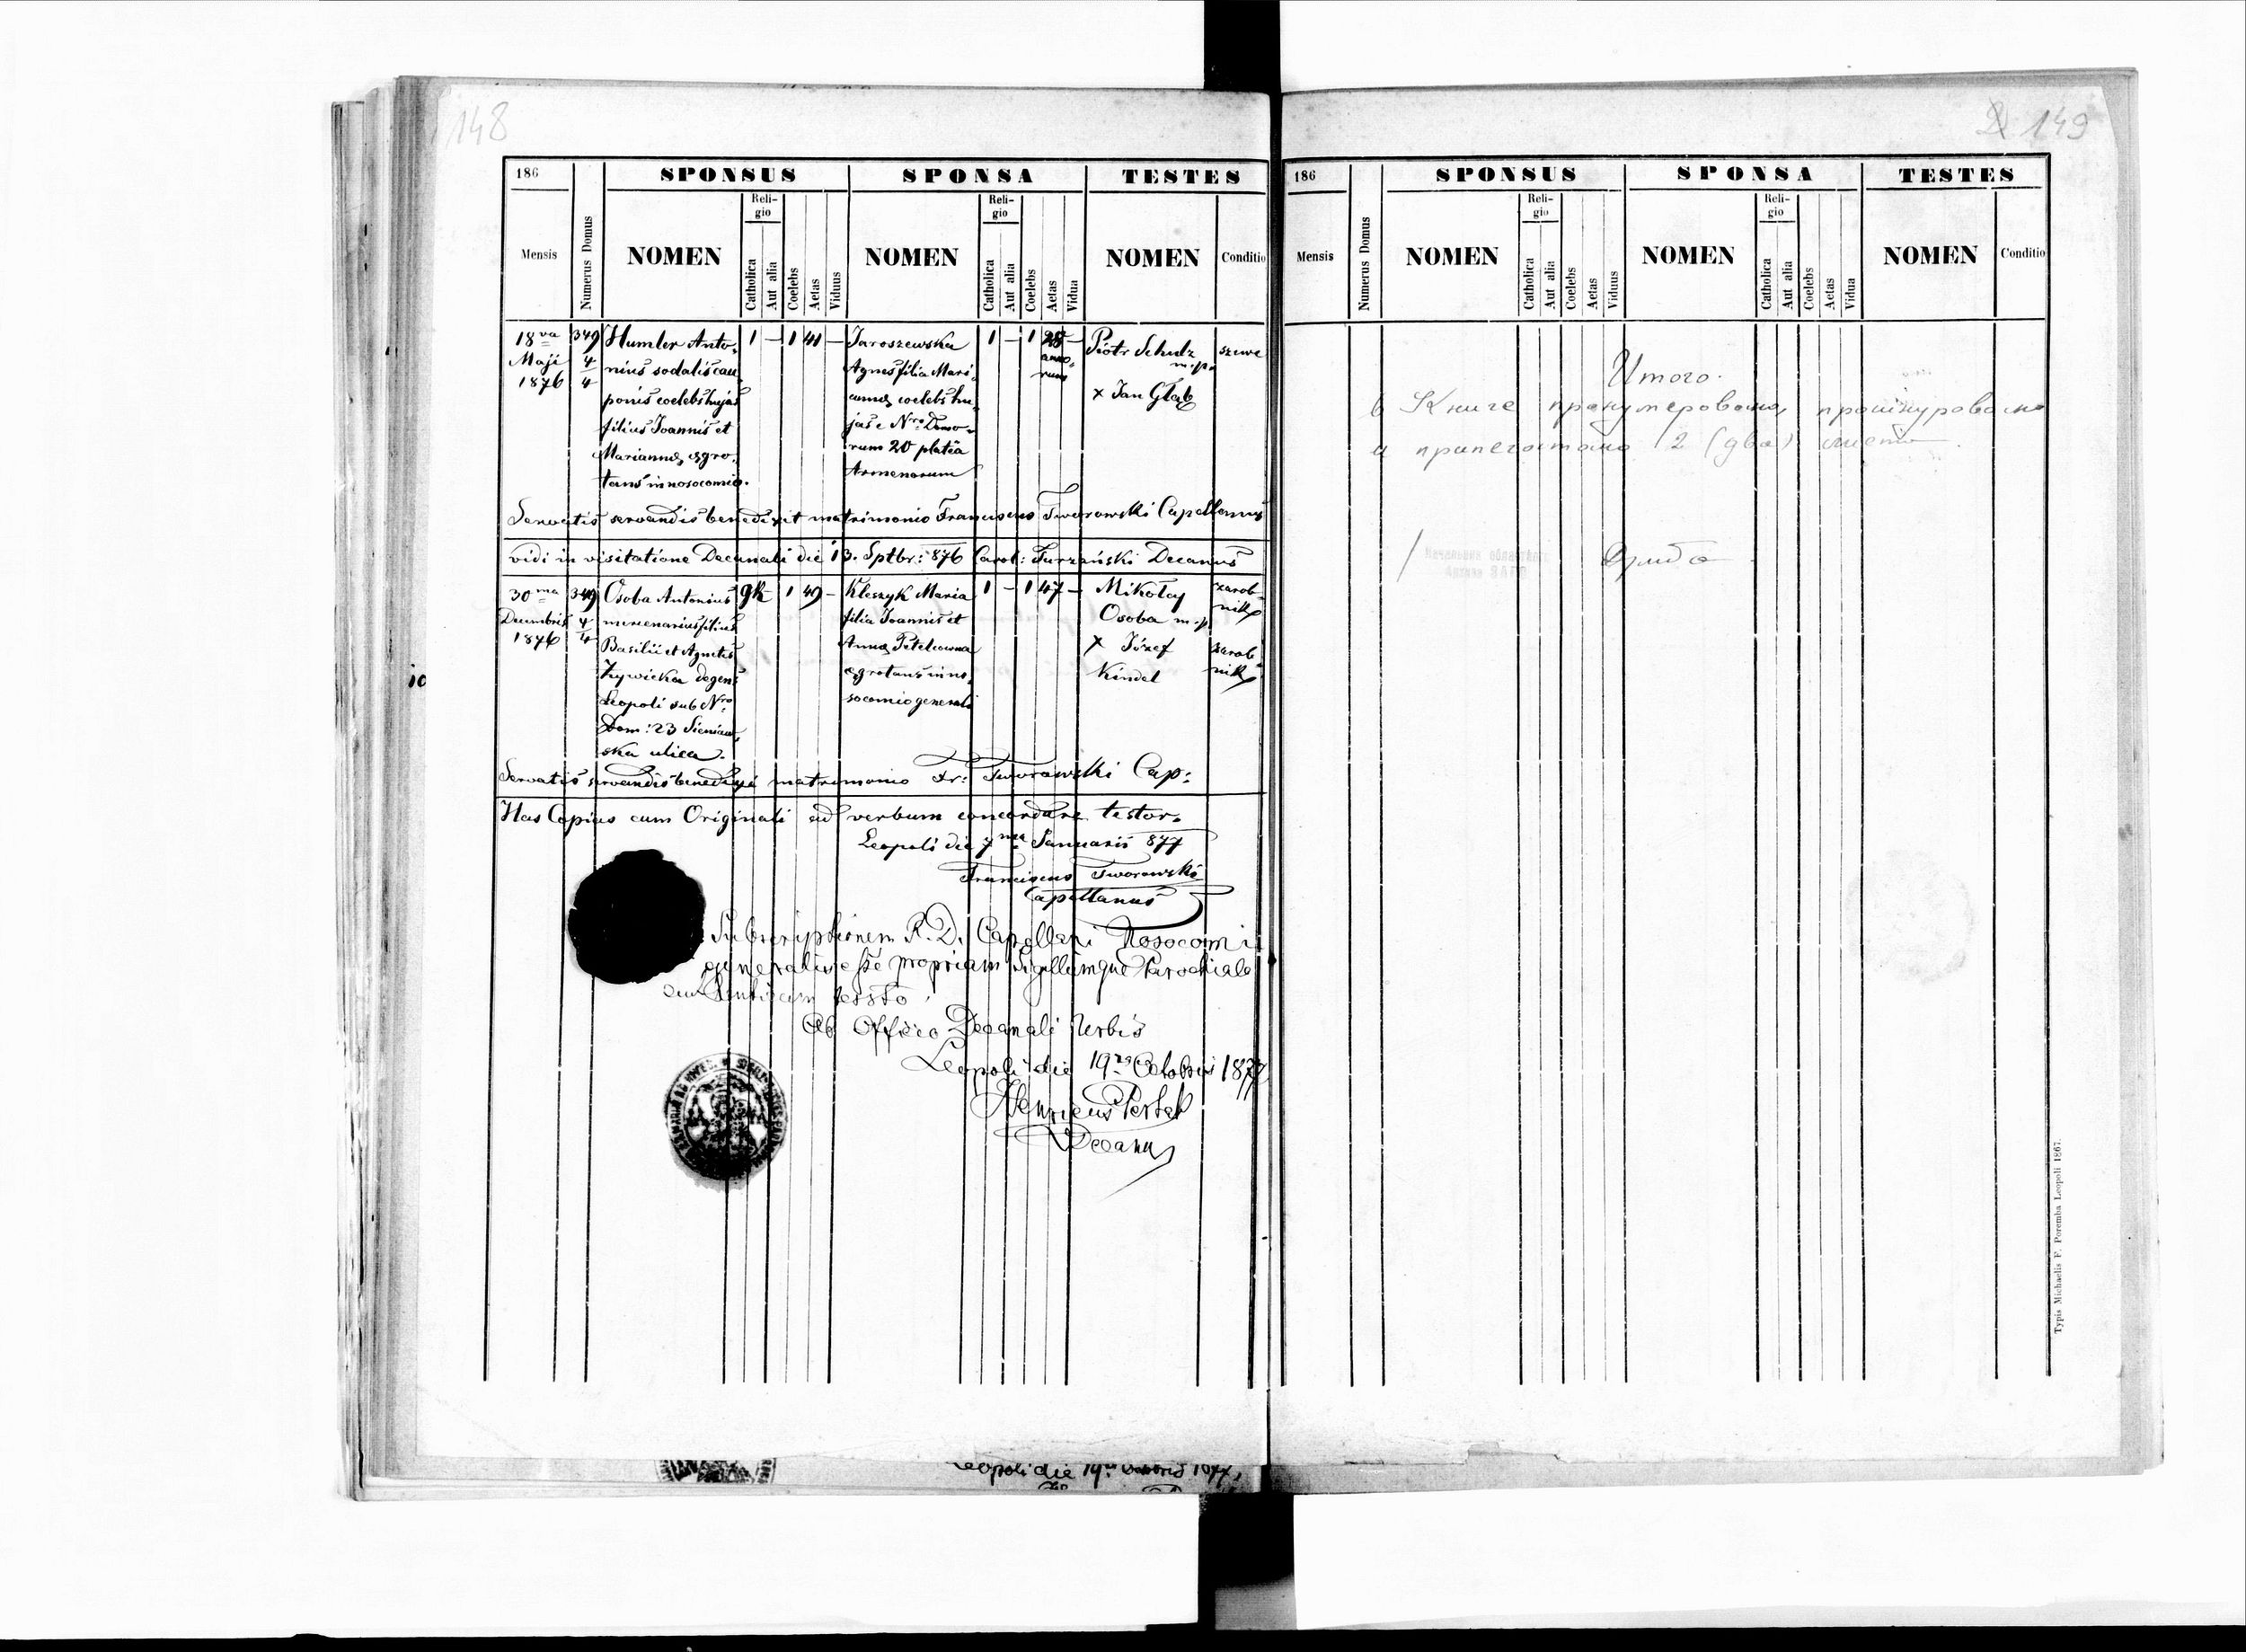 148
186
SPONSUS
SPONSA
TESTES
Mensis
Numerus Domus
NOMEN
Reli-
gio
Catholica
Aut alia
Coelebs
Aetas
Viduus
NOMEN
Reli-
gio
Catholica
Aut alia
Coelebs
Aetas
Vidua
NOMEN
Conditio
18va
Maji
1876
349
4
4
Humler Anto-
nius sodalis cau-
ponis coelebs hujas
filius Joannis et
Mariannæ, ægro-
tans in nosocomio.
1 — 1 41 —
Jaroszewska
Agnes filia Mari-
annæ, coelebs hu-
jas e Nro Domo-
rum 20 platea
Armenorum
1 — 1 28 —
anno-
rum
Piotr Schulz
m.p.
x Jan Głąb
szewc
Servatis servandis benedixit matrimonio Franciscus Tworowski Capellanus
vidi in visitatione Decanali die 13. Sptbr: 876 Carol: Turzański Decanus
30ma
Decembris
1876
349
4
4
Osoba Antonius
mercenarius filius
Basilii et Agnetis
Zywicka degens
Leopoli sub Nro
Dom: 23 Sieniaw-
ska ulica.
gk 1 49 —
Kleszyk Maria
filia Joannis et
Annæ Petelowna
ægrotans in no-
socomio generali
1 — 1 47 —
Mikołaj
Osoba m.p.
x Józef
Kindel
zarob-
nik
zarob-
nik
Servatis servandis benedixi matrimonio Fr: Tworowski Cap:
Has Copias cum Originali ad verbum concordare testor.
Leopoli die 7ma Januarii 877
Franciscus Tworowski
Capellanus
Subscriptionem R. D. Capellani Nosocomii
generalis esse propriam Sigillumque Parochiale
authenticum testor
Ab Officio Decanali Urbis
Leopoli die 19na Octobris 1877
Henricus
Decanus
Leopoli die 19na Octobris 1877,
2 149
186
SPONSUS
SPONSA
TESTES
Mensis
Numerus Domus
NOMEN
Reli-
gio
Catholica
Aut alia
Coelebs
Aetas
Viduus
NOMEN
Reli-
gio
Catholica
Aut alia
Coelebs
Aetas
Vidua
NOMEN
Conditio
Итого.
в Книге пронумеровано, прошнуровано
и припечатано 2 (два) листа.
Начальник областного
Архива ЗАГС
Typis Michaelis F. Poremba Leopoli 1867.